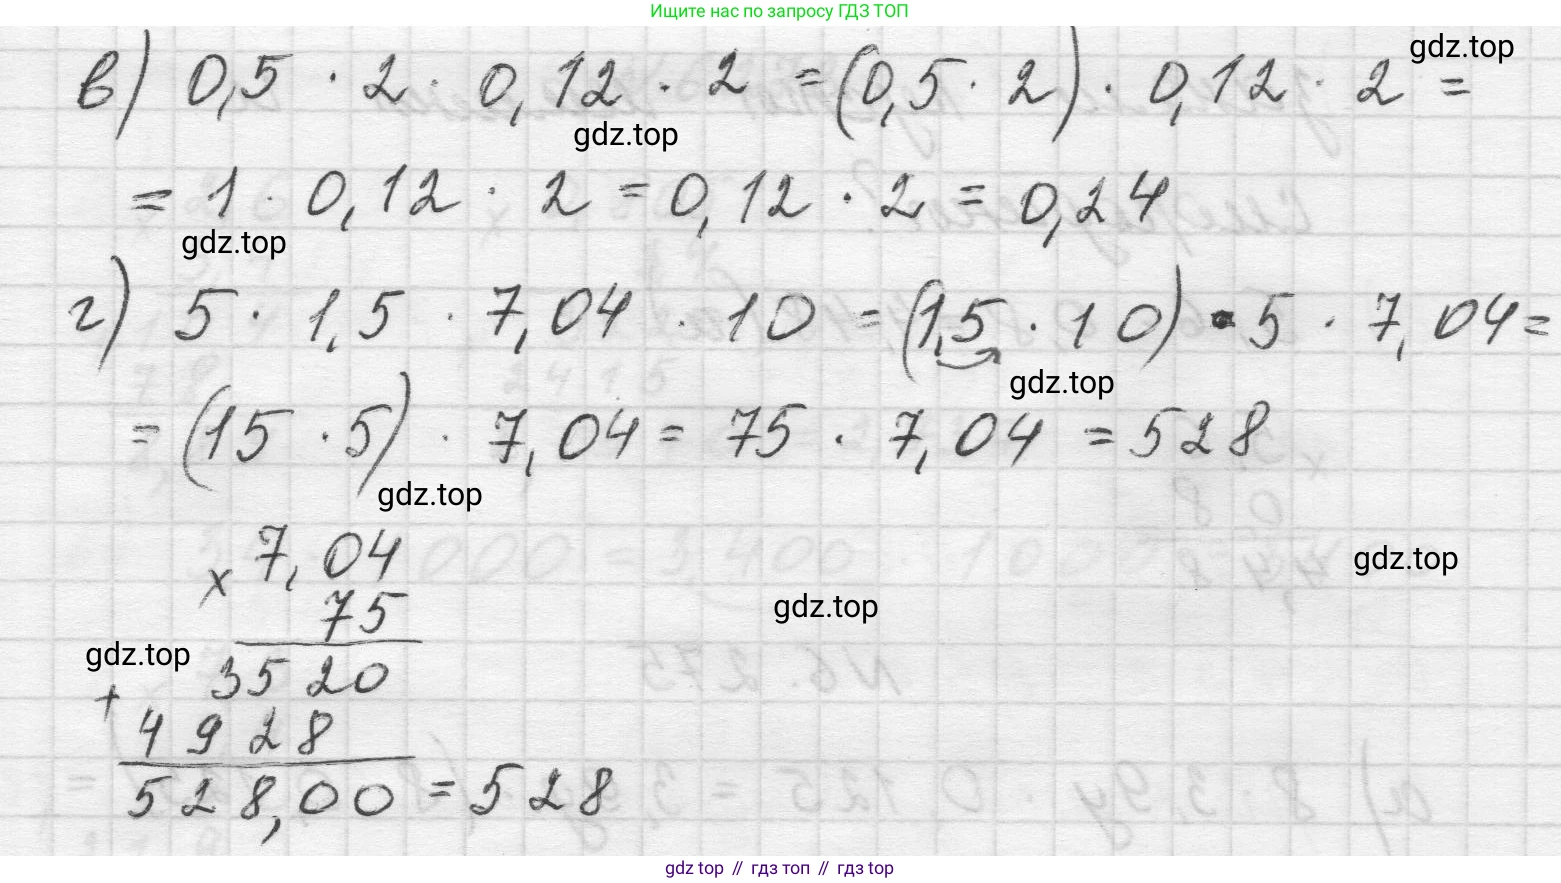 Ищите нас по запросу ГДЗ ТОП
gdz.top
в) 0,5 · 2 · 0,12 · 2 = (0,5 · 2) · 0,12 · 2 =
gdz.top
= 1 · 0,12 · 2 = 0,12 · 2 = 0,24
gdz.top
г) 5 · 1,5 · 7,04 · 10 = (1,5 · 10) · 5 · 7,04 =
gdz.top
= (15 · 5) · 7,04 = 75 · 7,04 = 528
gdz.top
× 7,04
gdz.top
75
gdz.top
gdz.top
+ 3520
4928
528,00 = 528
gdz.top // гдз топ // гдз топ